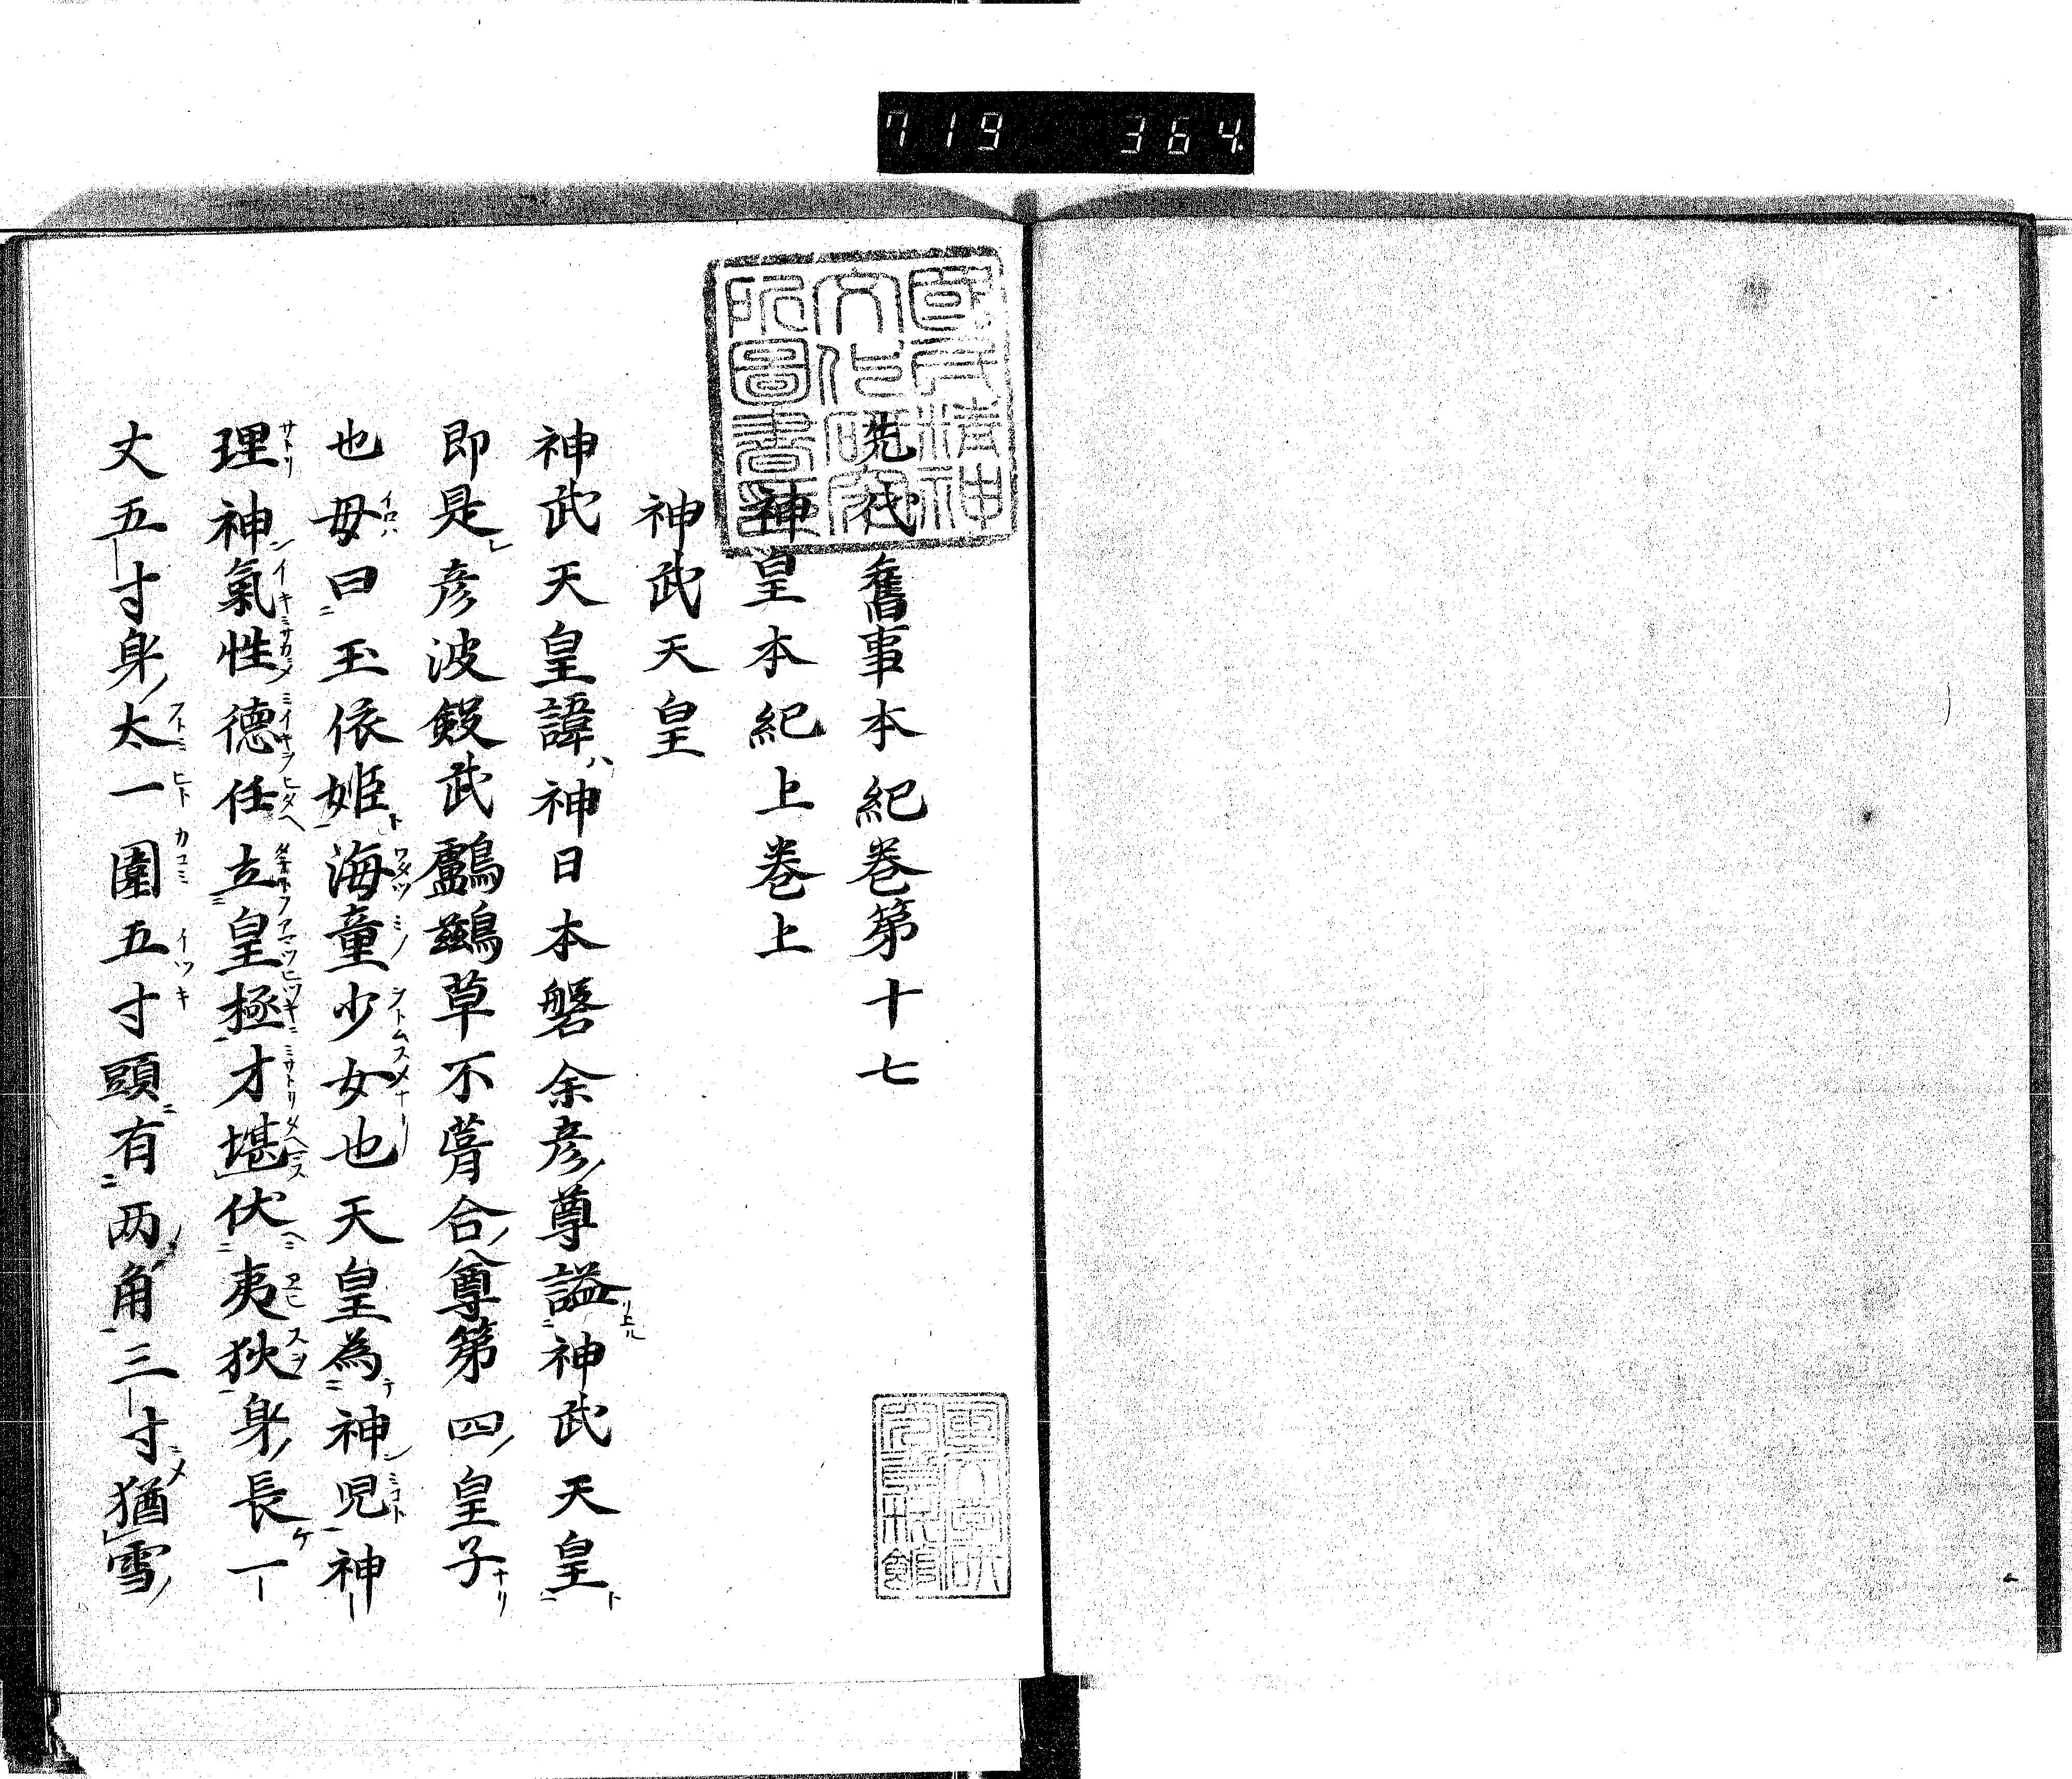 719 364
國民精神
文化研究
所圖書記
先代舊事本紀巻第十七
神皇本紀上巻上
神武天皇
神武天皇諱神日本磐余彦尊謚神武天皇
即是彦波瀲武鸕鷀草不葺合尊第四皇子
也母曰玉依姫海童少女也天皇為神児神
理神氣性德任立皇極才堪伏夷狄身長一
丈五寸身太一圍五寸頭有两角三寸猶雪